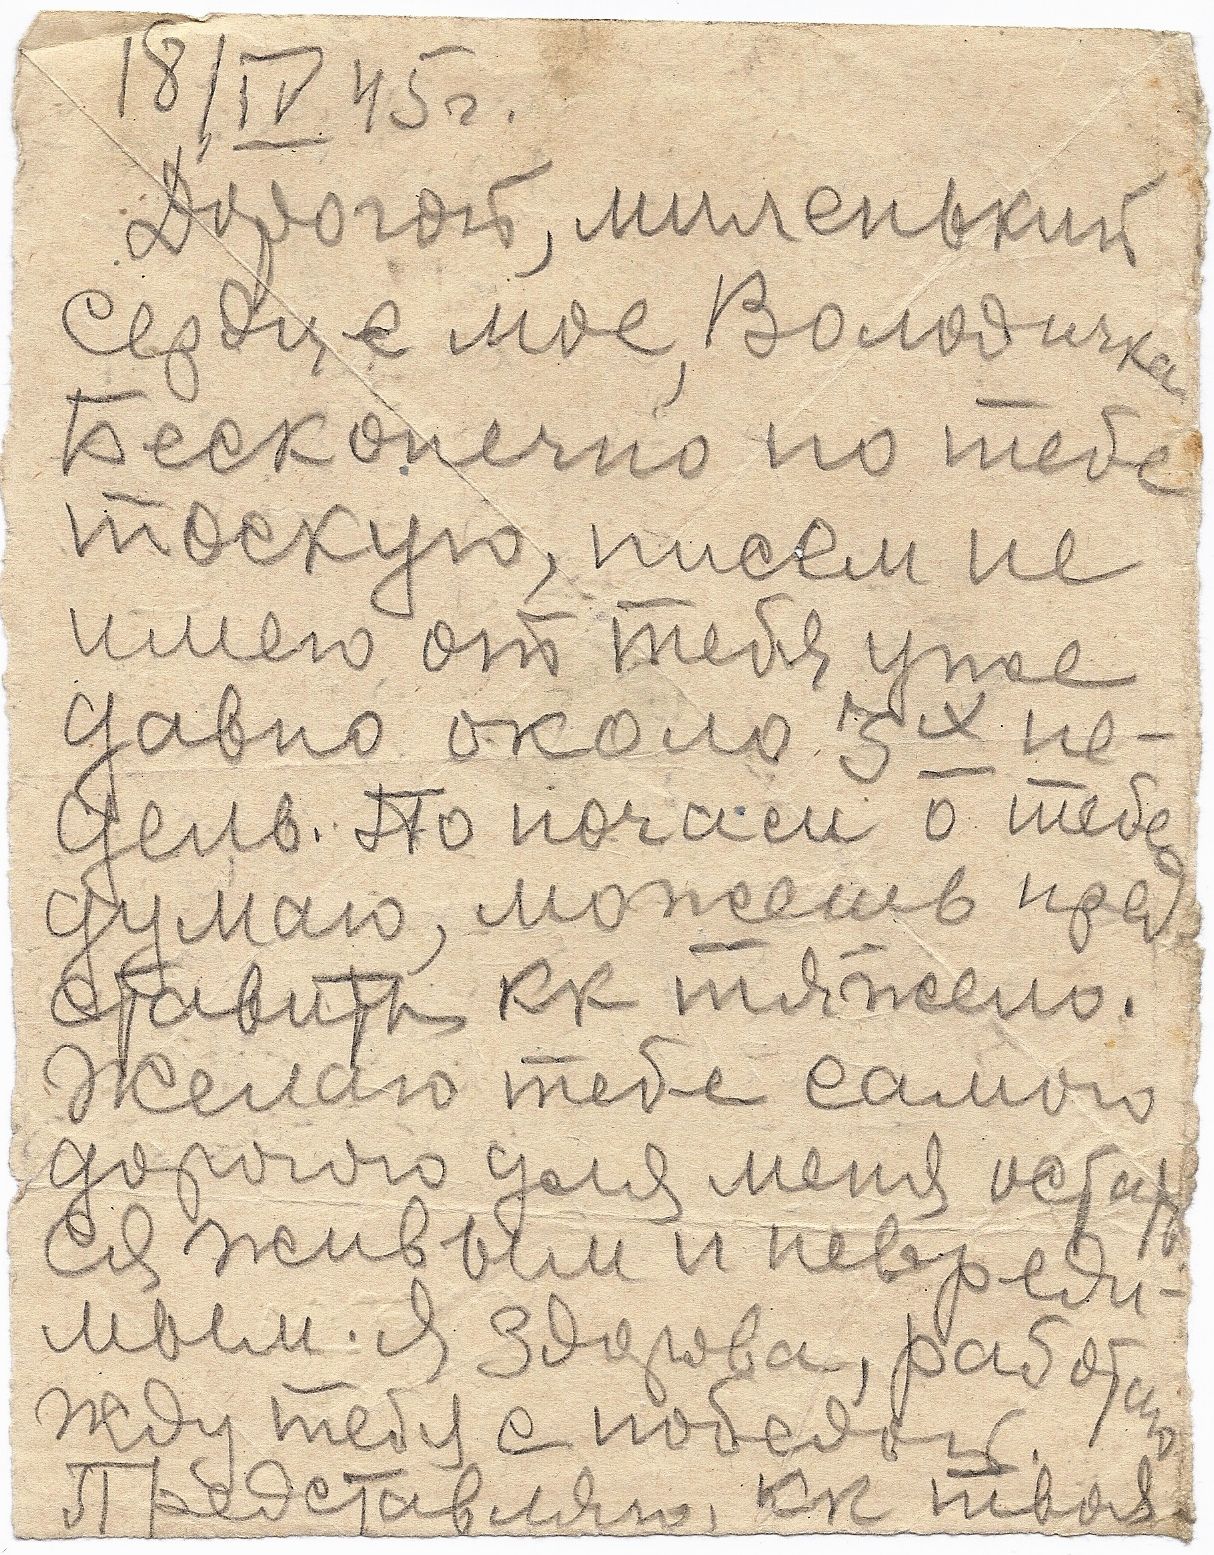 18/IV 45 г.
Дорогой, миленький
сердце мое, Володичка
Бесконечно по тебе
тоскую, писем не
имею от тебя уже
давно около 3х не-
дель. По ночам о тебе
думаю, можешь пред
ставить кк тяжело.
Желаю тебе самого
дорогого для меня остать
ся живым и невреди-
мым. Я здорова, работаю
жду тебя с победой.
Представляю, кк твоя